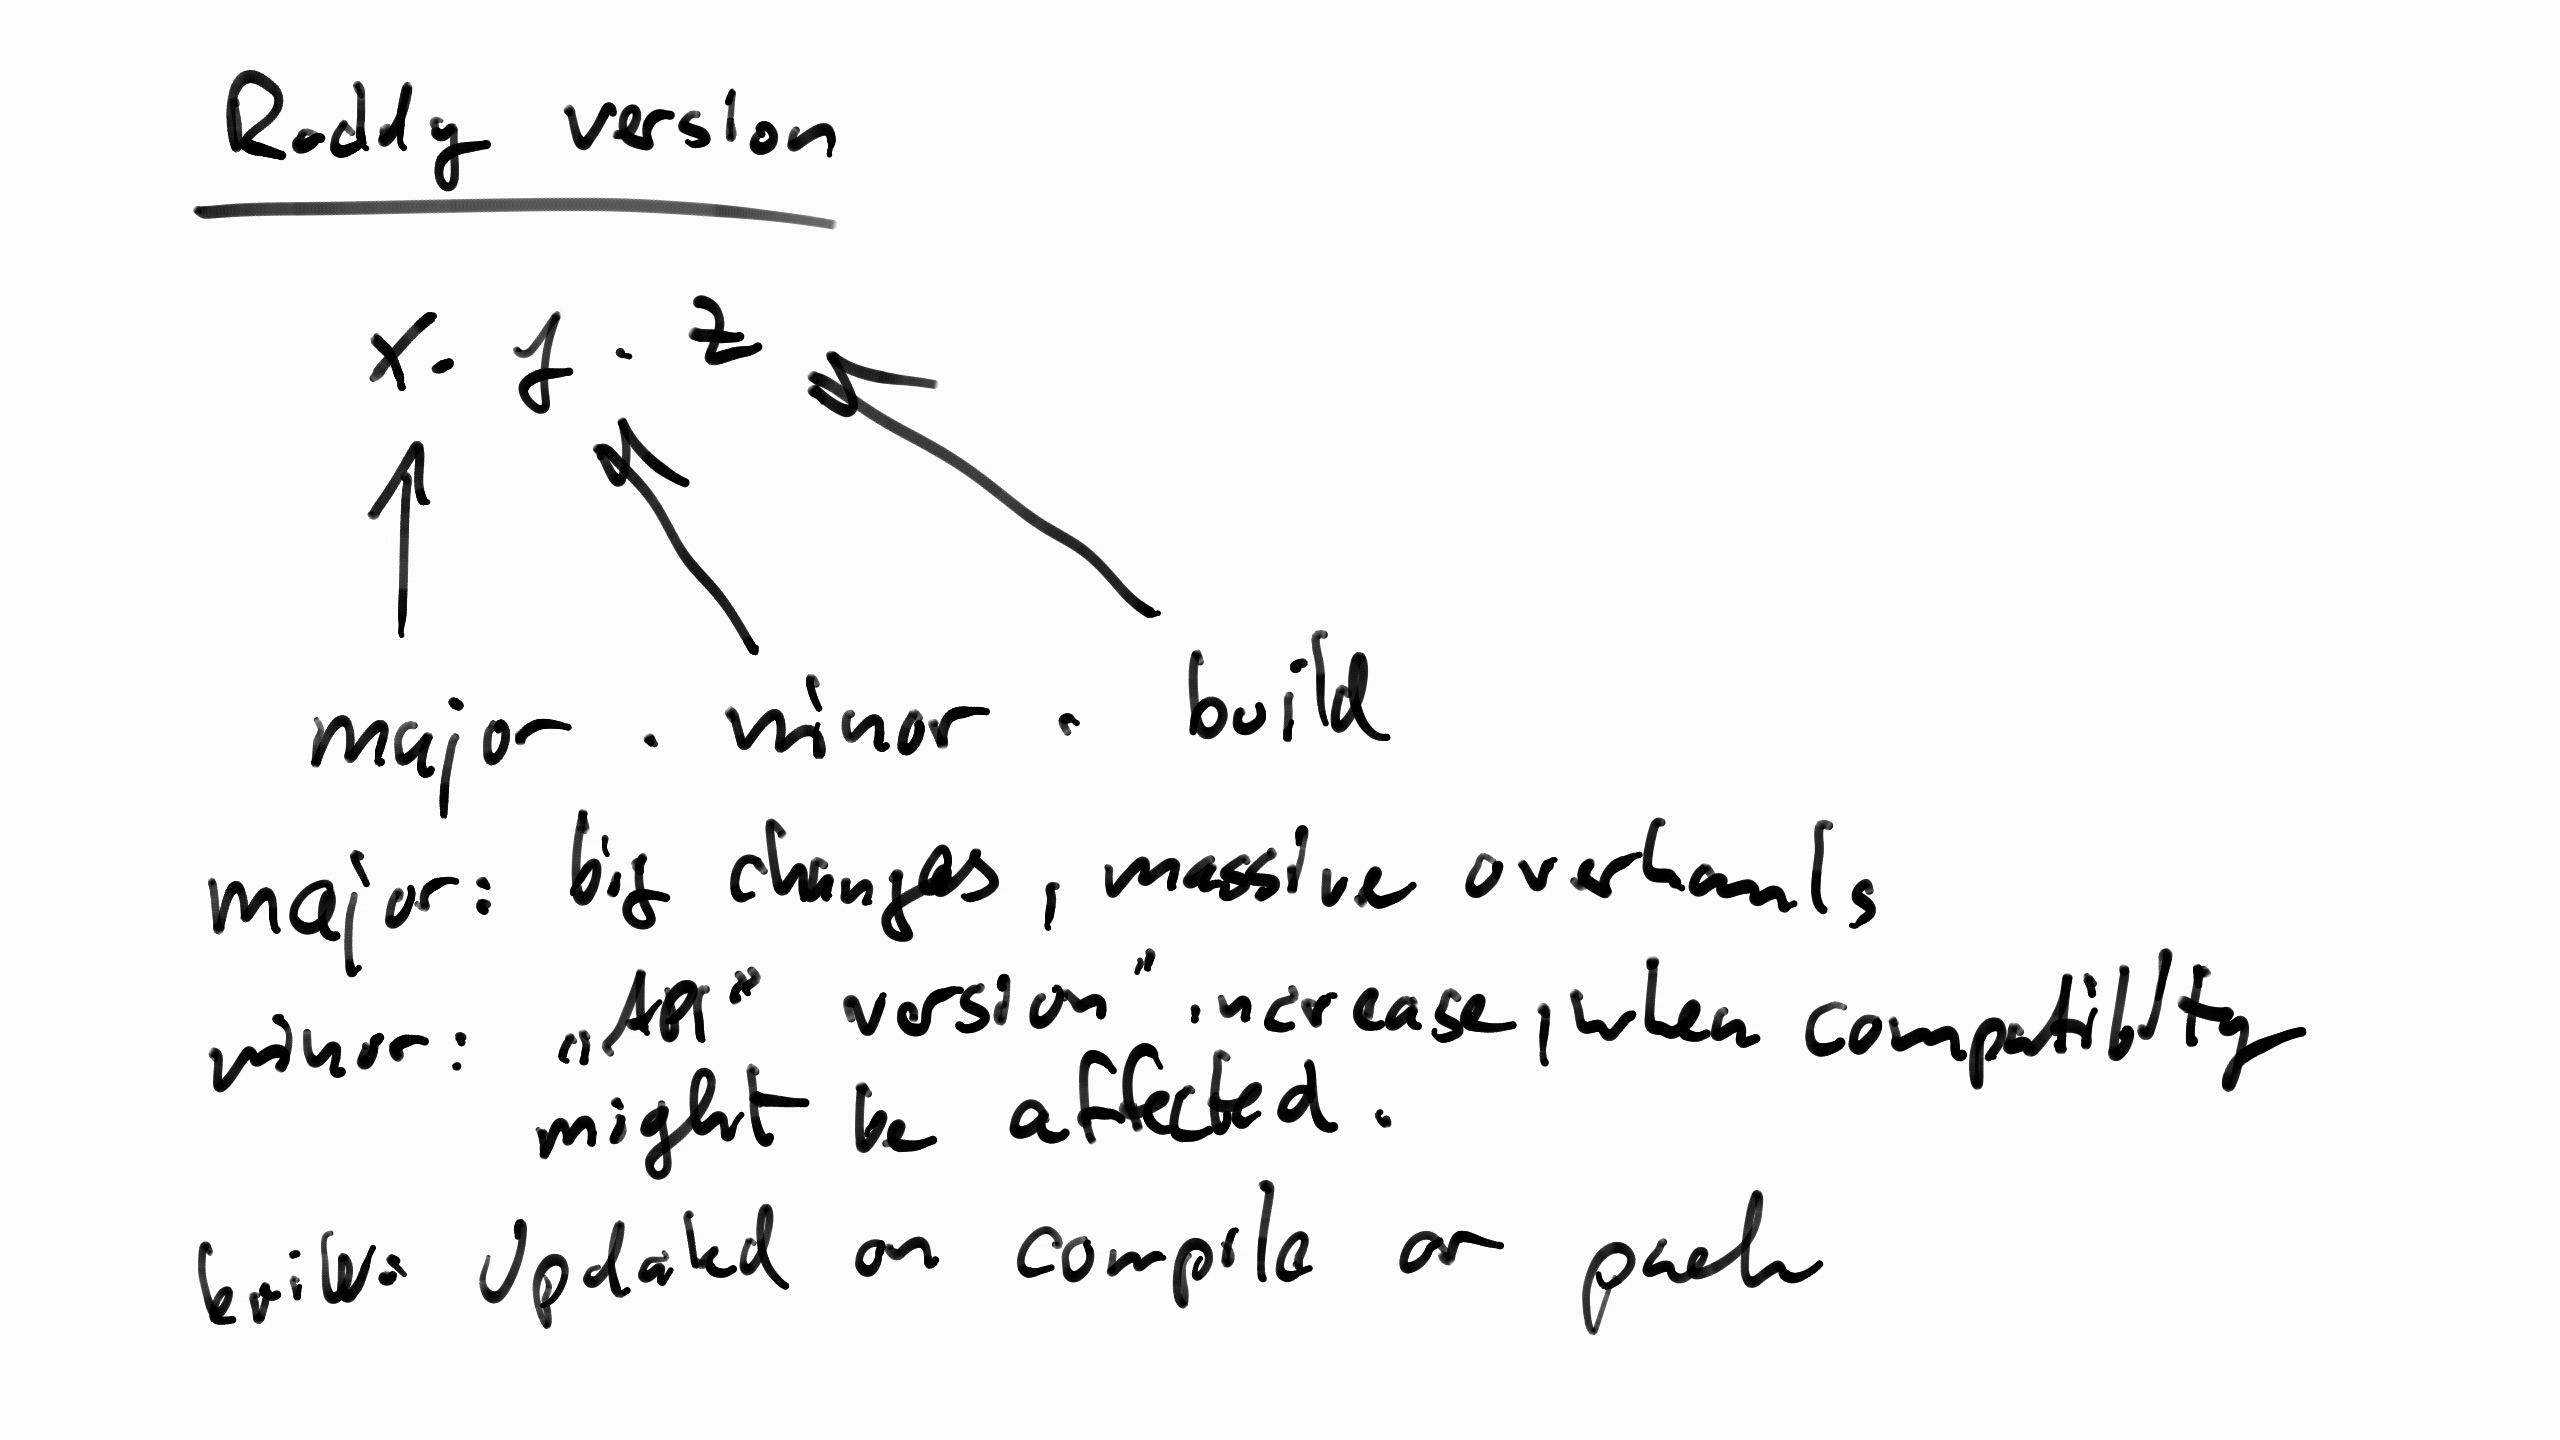 Roddy version
x. y . z
major . minor . build
major: big changes, massive overhauls
minor: „API” version” increase, when compatiblity
might be affected.
build: Updated on compile or pach